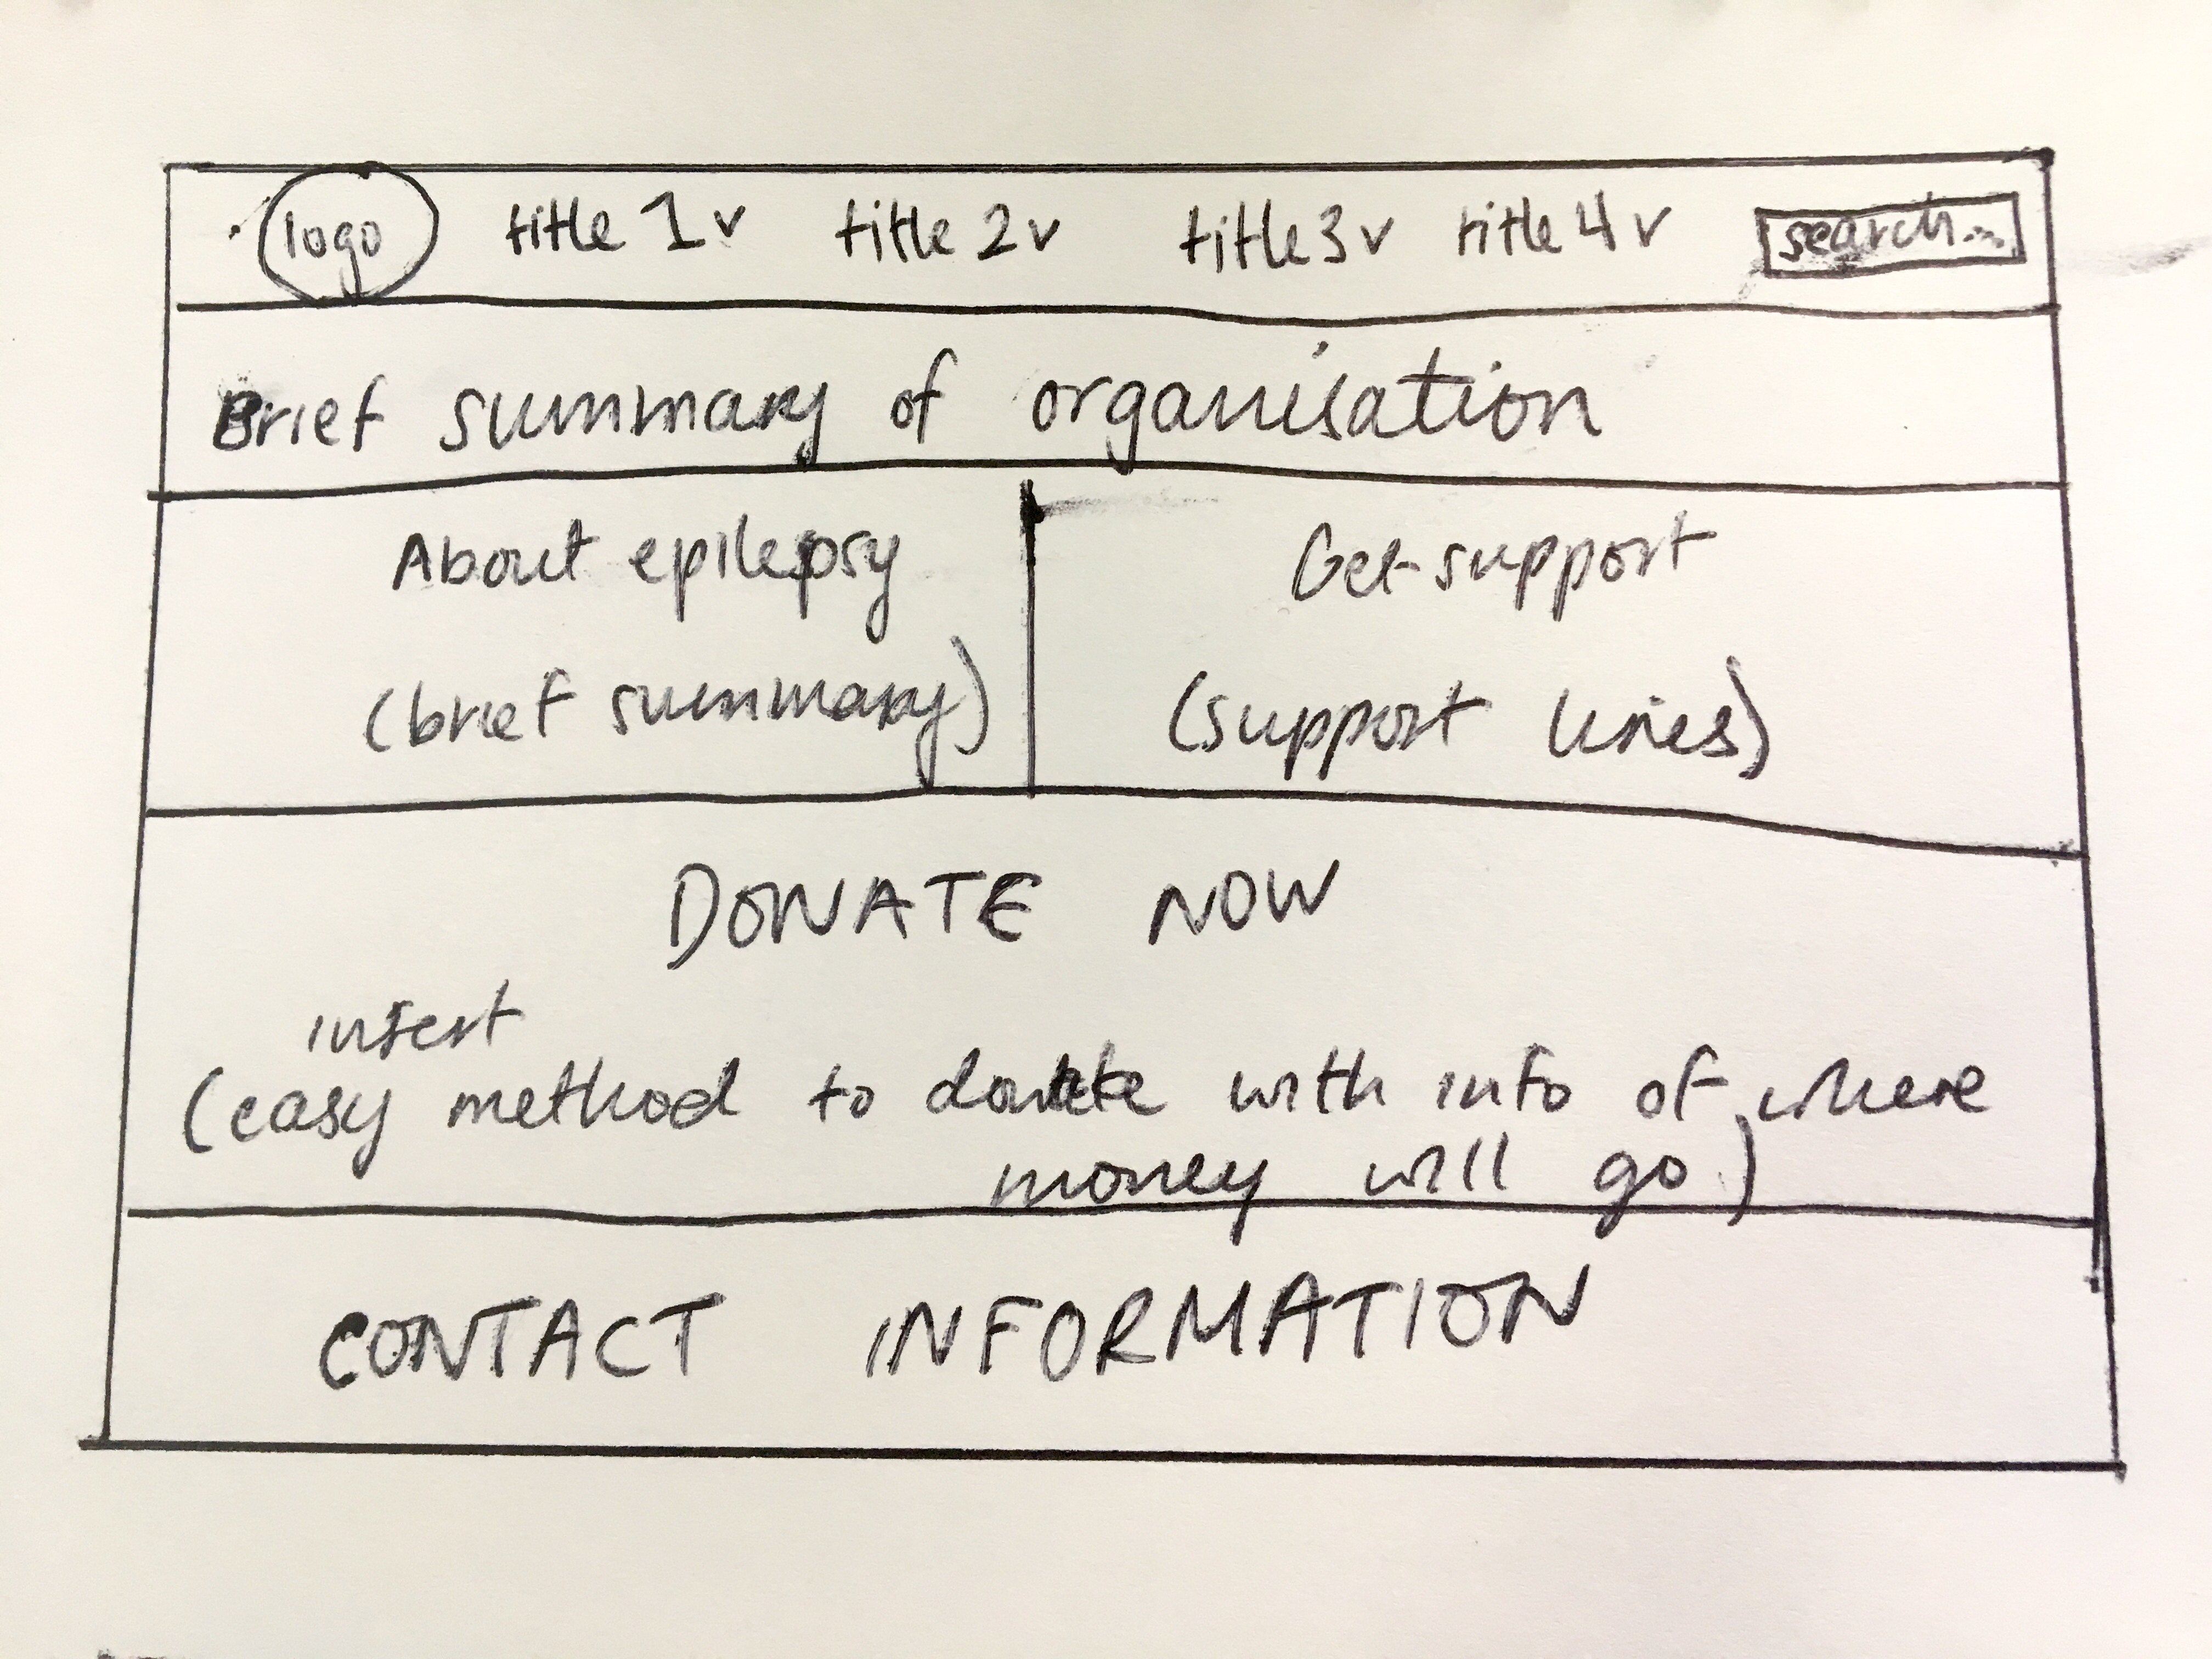 logo title 1 v title 2 v title 3 v title 4 v search...
Brief summary of organisation
About epilepsy
(brief summary)
Get support
(support lines)
DONATE NOW
insert
(easy method to donate with info of where
money will go)
CONTACT INFORMATION